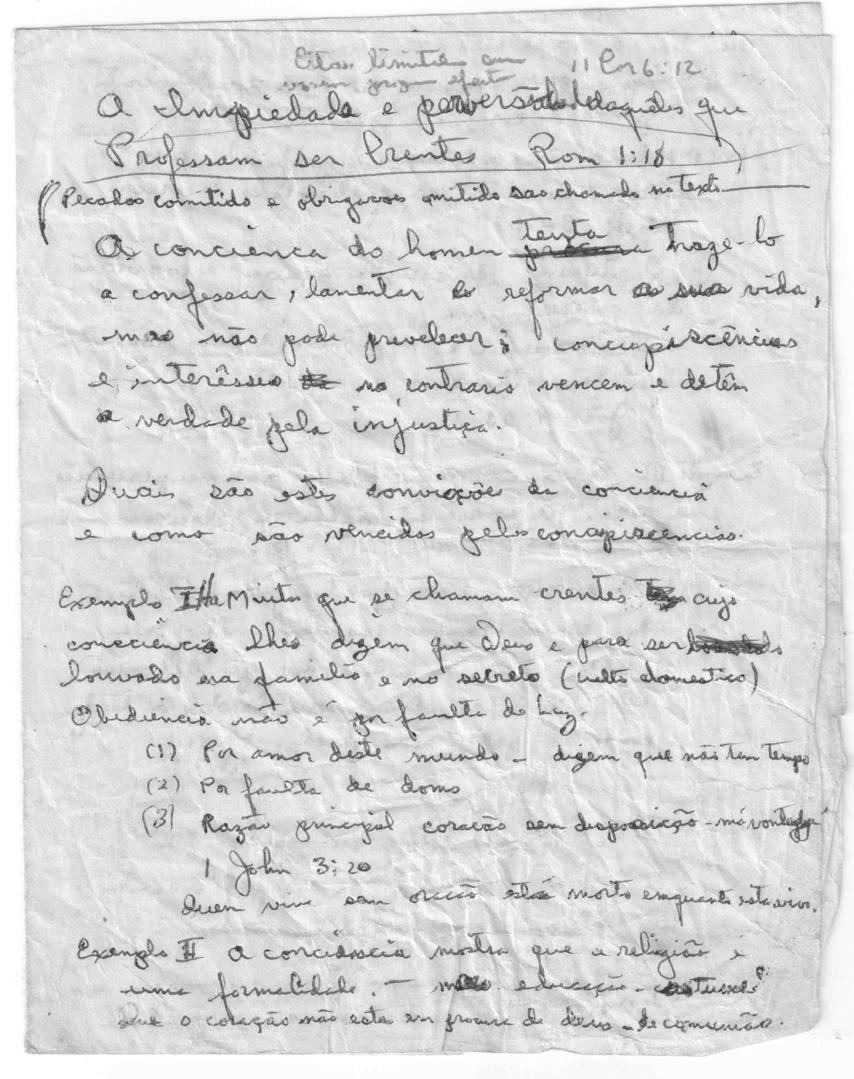 11 Cor 6:12
A Impiedade e perversão daqueles que
Professam ser Crentes Rom 1:18
(Pecados comitido e obrigacoes omitido sao chamado no texto
A conciença do homen tenta traze-lo
a confessar, lamentar e reformar a sua vida,
mas não pode prevelecer; concupiscências
e interêsses no contrario vencem e detêm
a verdade pela injustiça.
Quais são estes convicções da conciencia
e como são vencidos pelos concupiscencias.
Exemplo I Muitos que se chamam crentes cujo
consciência lhes dizem que Deus e para ser
louvado na familia e no secreto (culto domestico)
Obediencia não é por faulta de Luz.
(1) Por amor deste mundo - dizem que não tem tempo
(2) Por faulta de doms
(3) Razão principal coração sem disposição - má vontade
1 John 3:20
Quen vive sem oração está morto emquanto esta vivo.
Exemplo II A conciência mostra que a religião é
uma formalidade. - mas educação - costume
Que o coração não esta en procura de deus - de comunião.